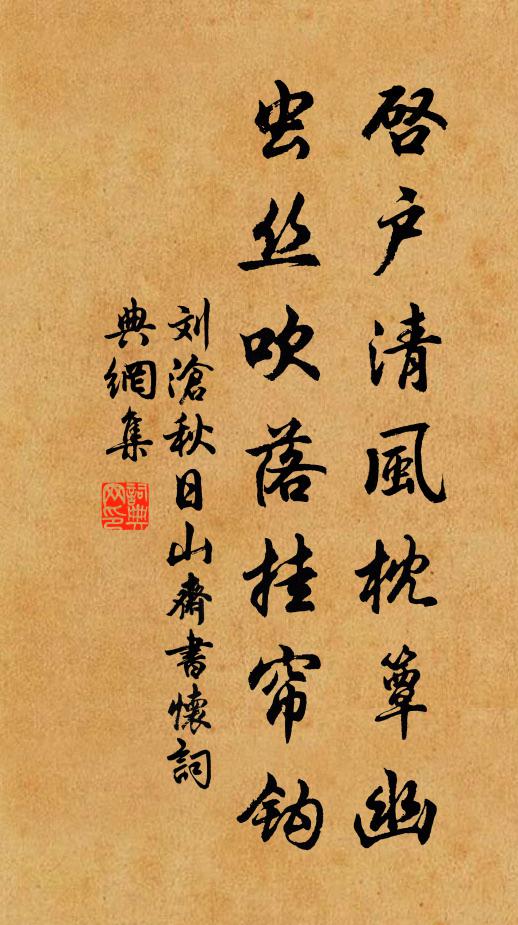 启户清风枕簟幽
虫丝吹落挂帘钩
刘滄秋日山齋書懷詞
典網集
詞典
网印